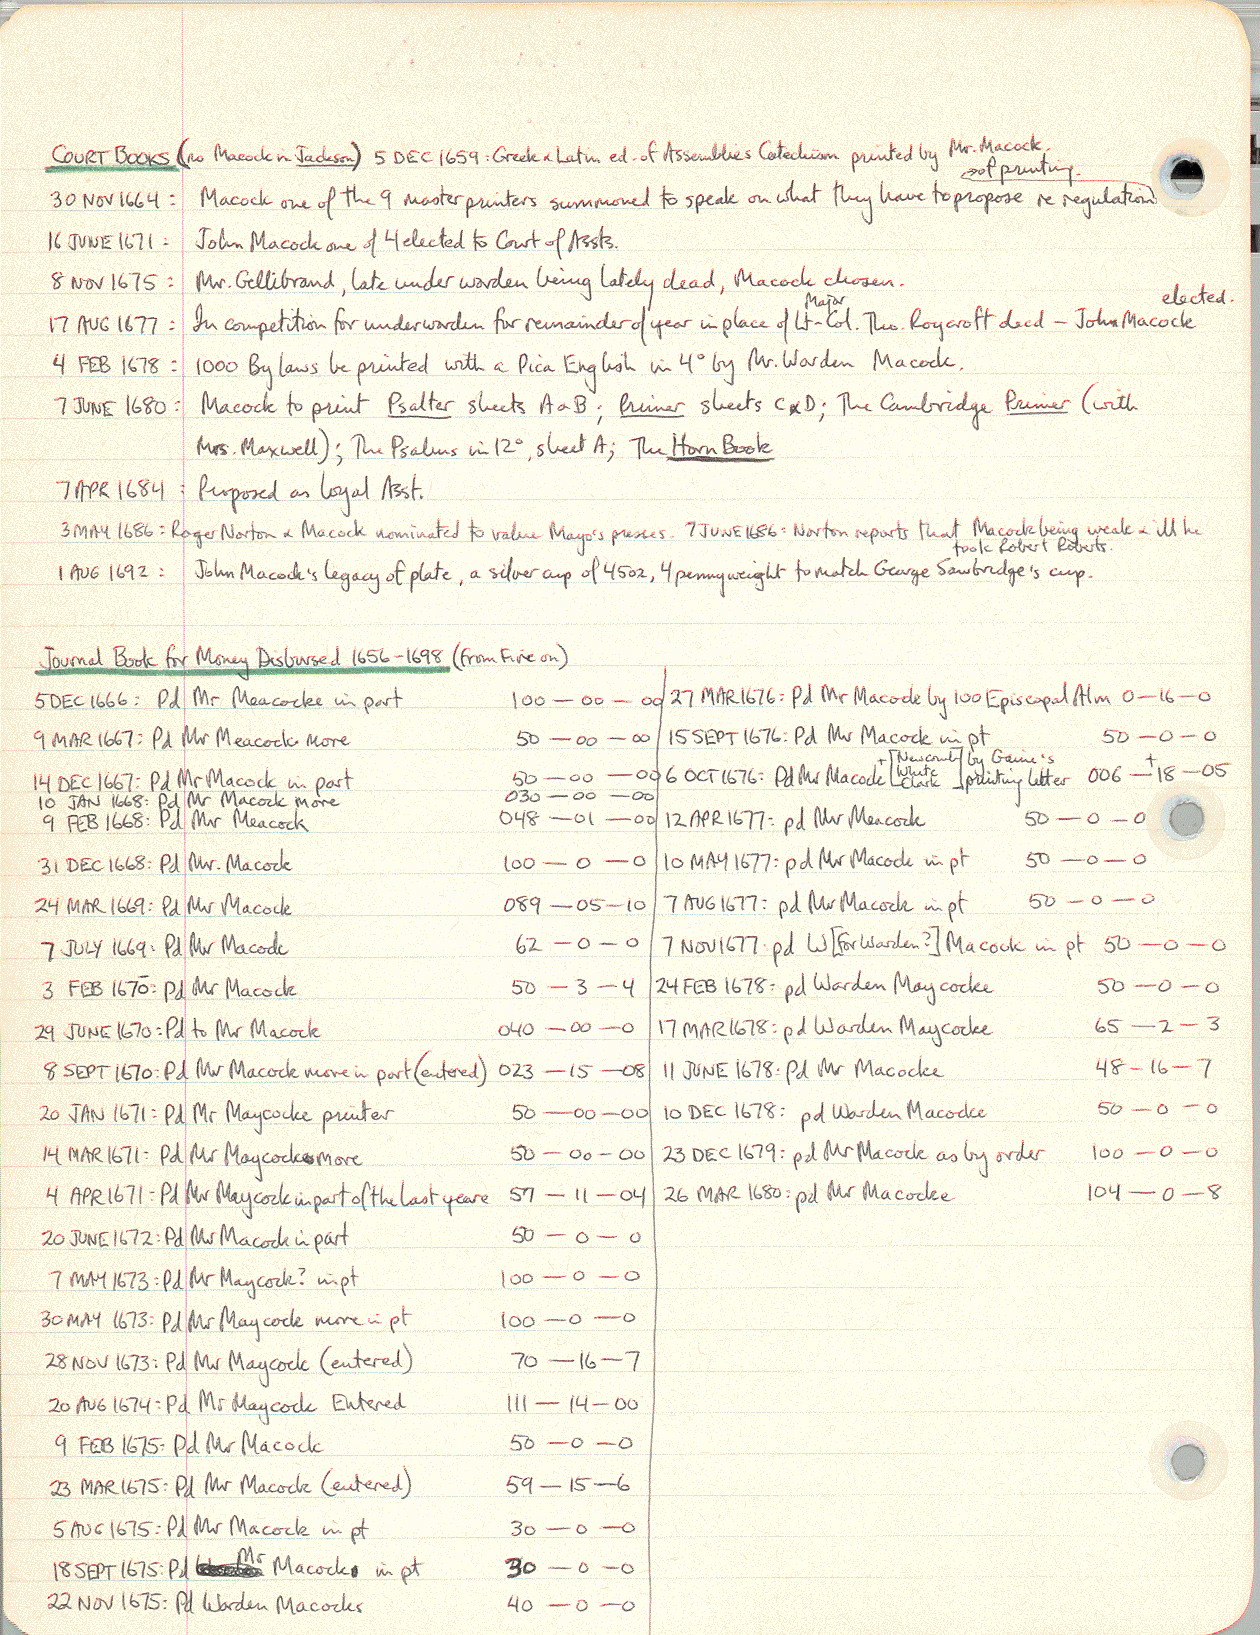 COURT BOOKS (no Macock in Jackson) 5 DEC 1659: Greek & Latin ed. of Assemblies Catechism printed by Mr. Macock.
of printing.
30 NOV 1664: Macock one of the 9 master printers summoned to speak on what they have to propose re regulation
16 JUNE 1671: John Macock one of 4 elected to Court of Assts.
8 NOV 1675: Mr. Gellibrand, late under warden being lately dead, Macock chosen.
Major elected.
17 AUG 1677: In competition for underwarden for remainder of year in place of Lt-Col. Tho. Roycroft decd – John Macock
4 FEB 1678: 1000 By laws be printed with a Pica English in 4° by Mr. Warden Macock.
7 JUNE 1680: Macock to print Psalter sheets A & B; Primer sheets C & D; The Cambridge Primer (with
Mrs. Maxwell); The Psalms in 12°, sheet A; The Horn Book
7 APR 1684: Proposed as loyal Asst.
3 MAY 1686: Roger Norton & Macock nominated to value Mayo's presses. 7 JUNE 1686: Norton reports that Macock being weak & ill he
took Robert Roberts.
1 AUG 1692: John Macock's legacy of plate, a silver cup of 45oz, 4 pennyweight to match George Sawbridge's cup.
Journal Book for Money Disbursed 1656–1698 (from Fire on)
5 DEC 1666: Pd Mr Meacocke in part 100 — 00 — 00
9 MAR 1667: Pd Mr Meacock more 50 — 00 — 00
14 DEC 1667: Pd Mr Macock in part 50 — 00 — 00
10 JAN 1668: Pd Mr Macock more 030 — 00 — 00
9 FEB 1668: Pd Mr Meacock 048 — 01 — 00
31 DEC 1668: Pd Mr. Macock 100 — 0 — 0
24 MAR 1669: Pd Mr Macock 089 — 05 — 10
7 JULY 1669: Pd Mr Macock 62 — 0 — 0
3 FEB 1670: Pd Mr Macock 50 — 3 — 4
29 JUNE 1670: Pd to Mr Macock 040 — 00 — 0
8 SEPT 1670: Pd Mr Macock more in part (entered) 023 — 15 — 08
20 JAN 1671: Pd Mr Maycocke printer 50 — 00 — 00
14 MAR 1671: Pd Mr Maycocke more 50 — 00 — 00
4 APR 1671: Pd Mr Maycock in part of the last yeare 57 — 11 — 04
20 JUNE 1672: Pd Mr Macock in part 50 — 0 — 0
7 MAY 1673: Pd Mr Maycock? in pt 100 — 0 — 0
30 MAY 1673: Pd Mr Maycock more in pt 100 — 0 — 0
28 NOV 1673: Pd Mr Maycock (entered) 70 — 16 — 7
20 AUG 1674: Pd Mr Maycock Entered 111 — 14 — 00
9 FEB 1675: Pd Mr Macock 50 — 0 — 0
23 MAR 1675: Pd Mr Macock (entered) 59 — 15 — 6
5 AUG 1675: Pd Mr Macock in pt 30 — 0 — 0
18 SEPT 1675: Pd Mr Macock in pt 30 — 0 — 0
22 NOV 1675: Pd Warden Macocks 40 — 0 — 0
27 MAR 1676: Pd Mr Macock by 100 Episcopal Alm 0 — 16 — 0
15 SEPT 1676: Pd Mr Macock in pt 50 — 0 — 0
6 OCT 1676: Pd Mr Macock + [Newcomb White Clark] by Gaine's printing letter 006 — 18 — 05
12 APR 1677: pd Mr Meacock 50 — 0 — 0
10 MAY 1677: pd Mr Macock in pt 50 — 0 — 0
7 AUG 1677: pd Mr Macock in pt 50 — 0 — 0
7 NOV 1677: pd W [for Warden?] Macock in pt 50 — 0 — 0
24 FEB 1678: pd Warden Maycocke 50 — 0 — 0
17 MAR 1678: pd Warden Maycocke 65 — 2 — 3
11 JUNE 1678: Pd Mr Macocke 48 — 16 — 7
10 DEC 1678: pd Warden Macocke 50 — 0 — 0
23 DEC 1679: pd Mr Macock as by order 100 — 0 — 0
26 MAR 1680: pd Mr Macocke 104 — 0 — 8